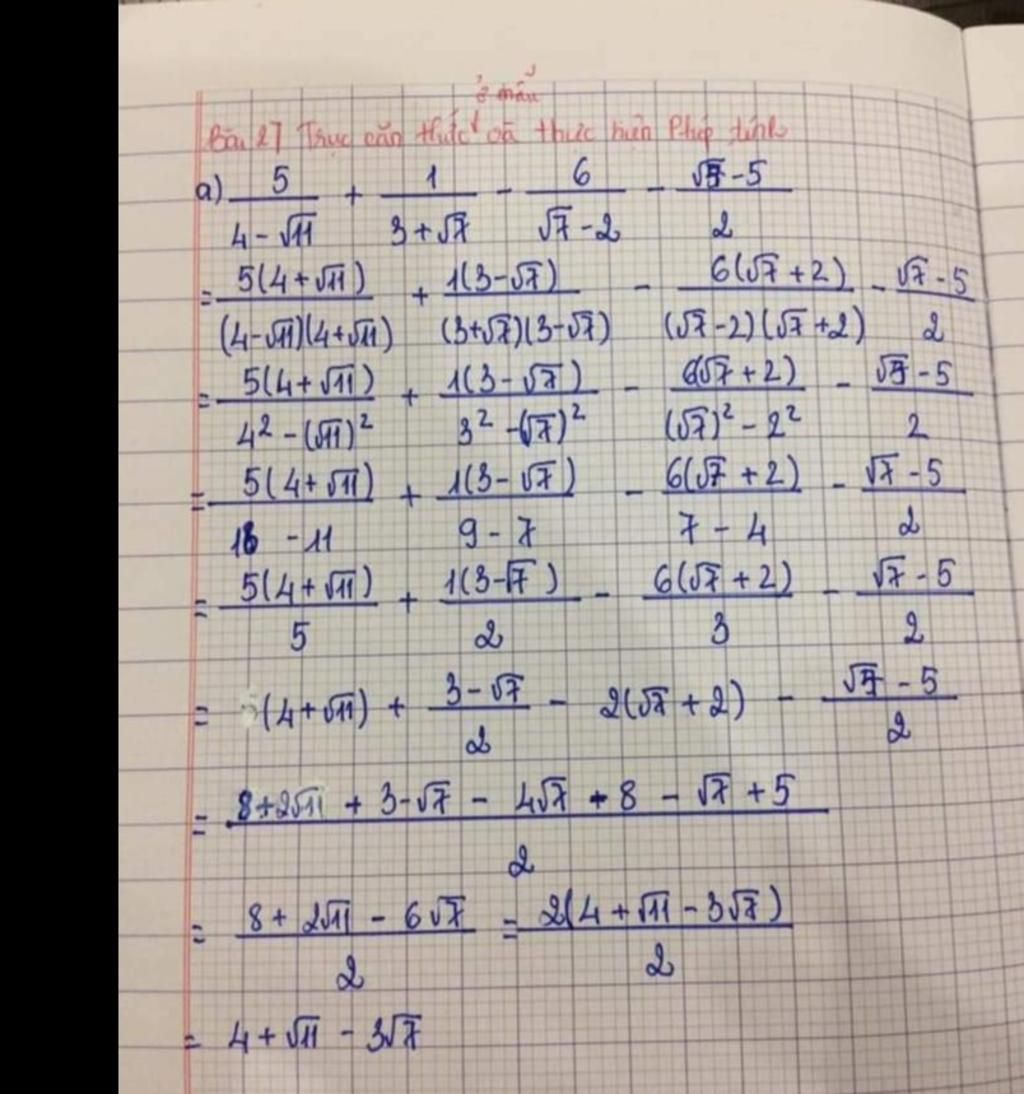 ở mẫu
Bài 27 Trục căn thức và thực hiện Phép tính
a) 5/(4-√11) + 1/(3+√7) - 6/(√7-2) - (√7-5)/2
= 5(4+√11)/((4-√11)(4+√11)) + 1(3-√7)/((3+√7)(3-√7)) - 6(√7+2)/((√7-2)(√7+2)) - (√7-5)/2
= 5(4+√11)/(4²-(√11)²) + 1(3-√7)/(3²-(√7)²) - 6(√7+2)/((√7)²-2²) - (√7-5)/2
= 5(4+√11)/(16-11) + 1(3-√7)/(9-7) - 6(√7+2)/(7-4) - (√7-5)/2
= 5(4+√11)/5 + 1(3-√7)/2 - 6(√7+2)/3 - (√7-5)/2
= (4+√11) + (3-√7)/2 - 2(√7+2) - (√7-5)/2
= (8+2√11 + 3-√7 - 4√7 - 8 - √7 + 5)/2
= (8 + 2√11 - 6√7)/2 = 2(4 + √11 - 3√7)/2
= 4 + √11 - 3√7